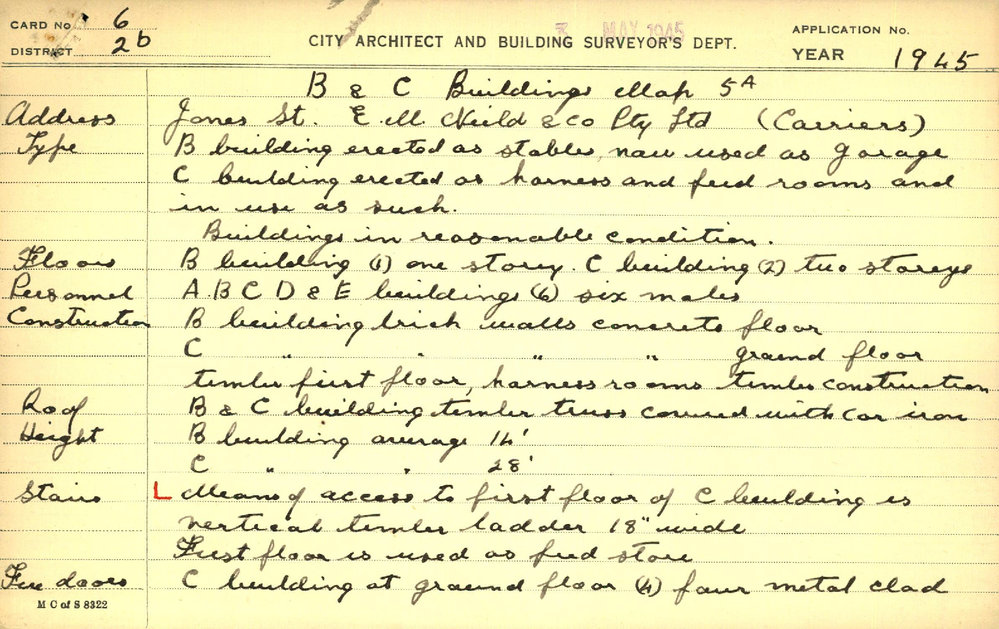 CARD No. 6
DISTRICT 2b
3 MAY 1945
CITY ARCHITECT AND BUILDING SURVEYOR'S DEPT.
APPLICATION No.
YEAR 1945
B & C Buildings Map 5A
Address Jones St. E. M. Nield & Co Pty Ltd (Carriers)
Type B building erected as stables, now used as garage
C building erected as harness and feed rooms and
in use as such.
Buildings in reasonable condition.
Floors B building (1) one storey. C building (2) two storeys
Personnel A. B C D & E buildings (6) six males
Construction B building brick walls concrete floor
C " " " " ground floor
timber first floor, harness rooms timber construction
Roof B & C building timber truss covered with cor iron
Height B building average 14'
C " " 28'
Stairs L Means of access to first floor of C building is
vertical timber ladder 18" wide
First floor is used as feed store
Fire doors C building at ground floor (4) four metal clad
M C of S 8322